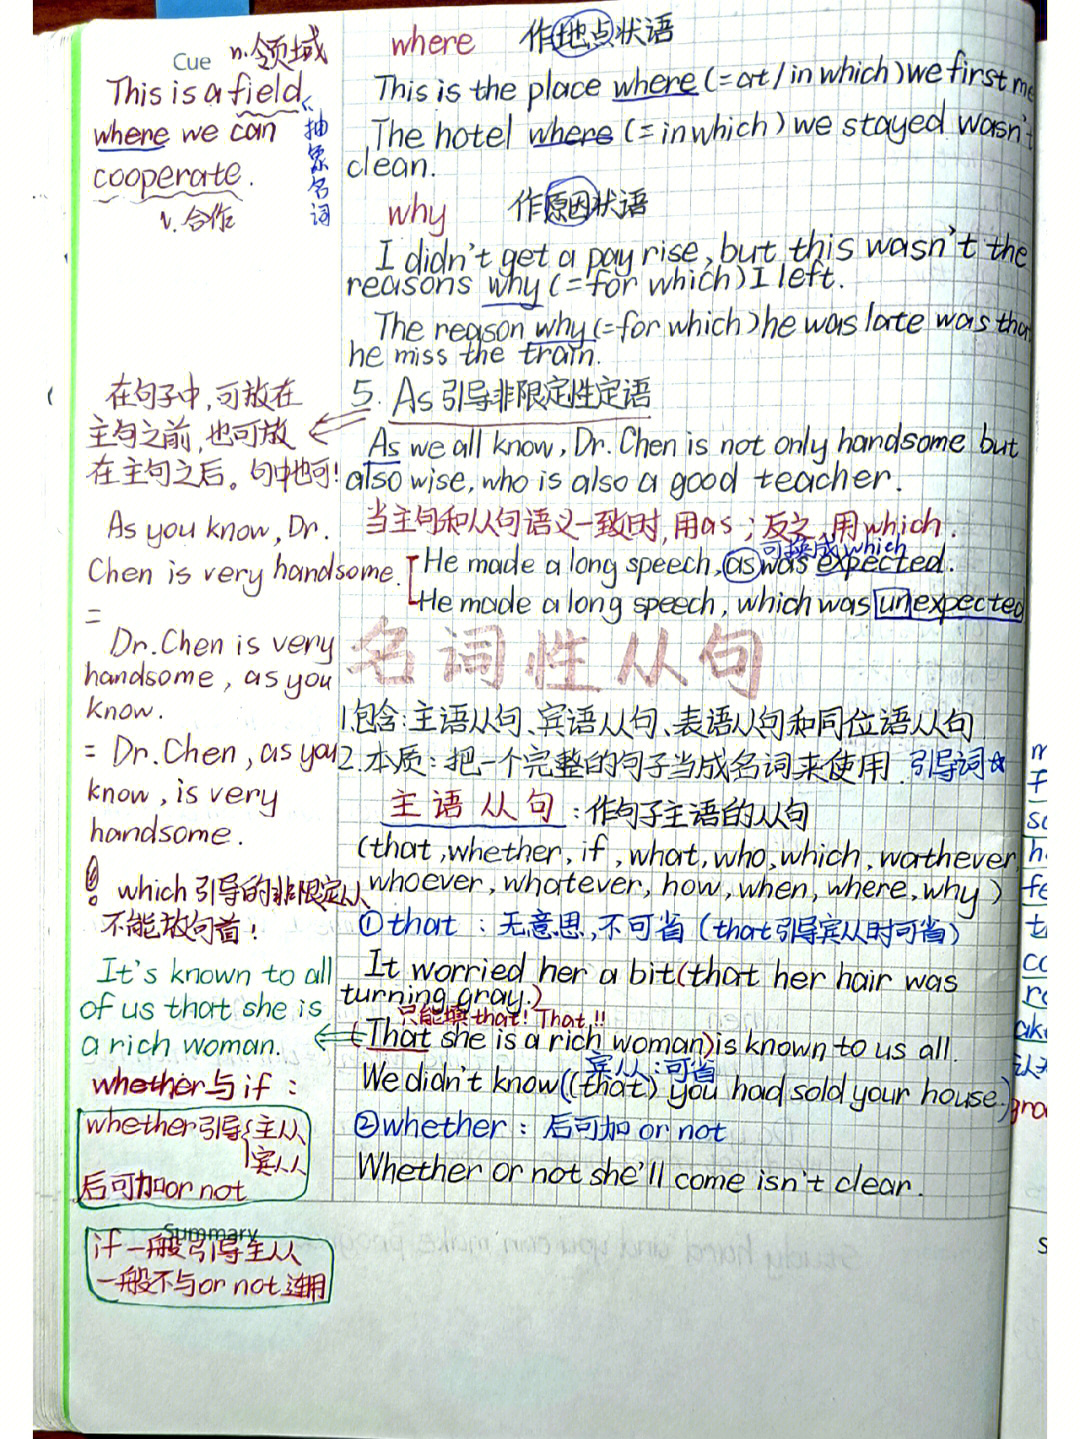 Cue n.领域
This is a field
where we can
cooperate.
v.合作
抽象名词
where 作地点状语
This is the place where (=at/in which) we first me
The hotel where (=in which) we stayed wasn't
clean.
why 作原因状语
I didn't get a pay rise, but this wasn't the
reasons why (=for which) I left.
The reason why (=for which) he was late was that
he miss the train.
5. As引导非限定性定语
在句子中,可放在
主句之前,也可放
在主句之后。句中也可!
As we all know, Dr. Chen is not only handsome but
also wise, who is also a good teacher.
当主句和从句语义一致时,用as;反之,用which.
可换成which
He made a long speech, as was expected.
He made a long speech, which was unexpected
As you know, Dr.
Chen is very handsome.
=
Dr. Chen is very
handsome, as you
know.
= Dr. Chen, as you
know, is very
handsome.
! which引导的非限定从
不能放句首!
名词性从句
1.包含:主语从句、宾语从句、表语从句和同位语从句
2.本质:把一个完整的句子当成名词来使用.引导词☆
主语从句:作句子主语的从句
(that, whether, if, what, who, which, wathever,
whoever, whatever, how, when, where, why)
①that:无意思,不可省(that引导宾从时可省)
It worried her a bit (that her hair was
turning gray.)
只能填that! That!!
(That she is a rich woman) is known to us all.
宾从:可省
We didn't know ((that) you had sold your house.)
②whether:后可加 or not
Whether or not she'll come isn't clear.
It's known to all
of us that she is
a rich woman.
whether与if:
whether引导{主从
宾从
后可加or not
Summary
if 一般引导主从
一般不与or not连用